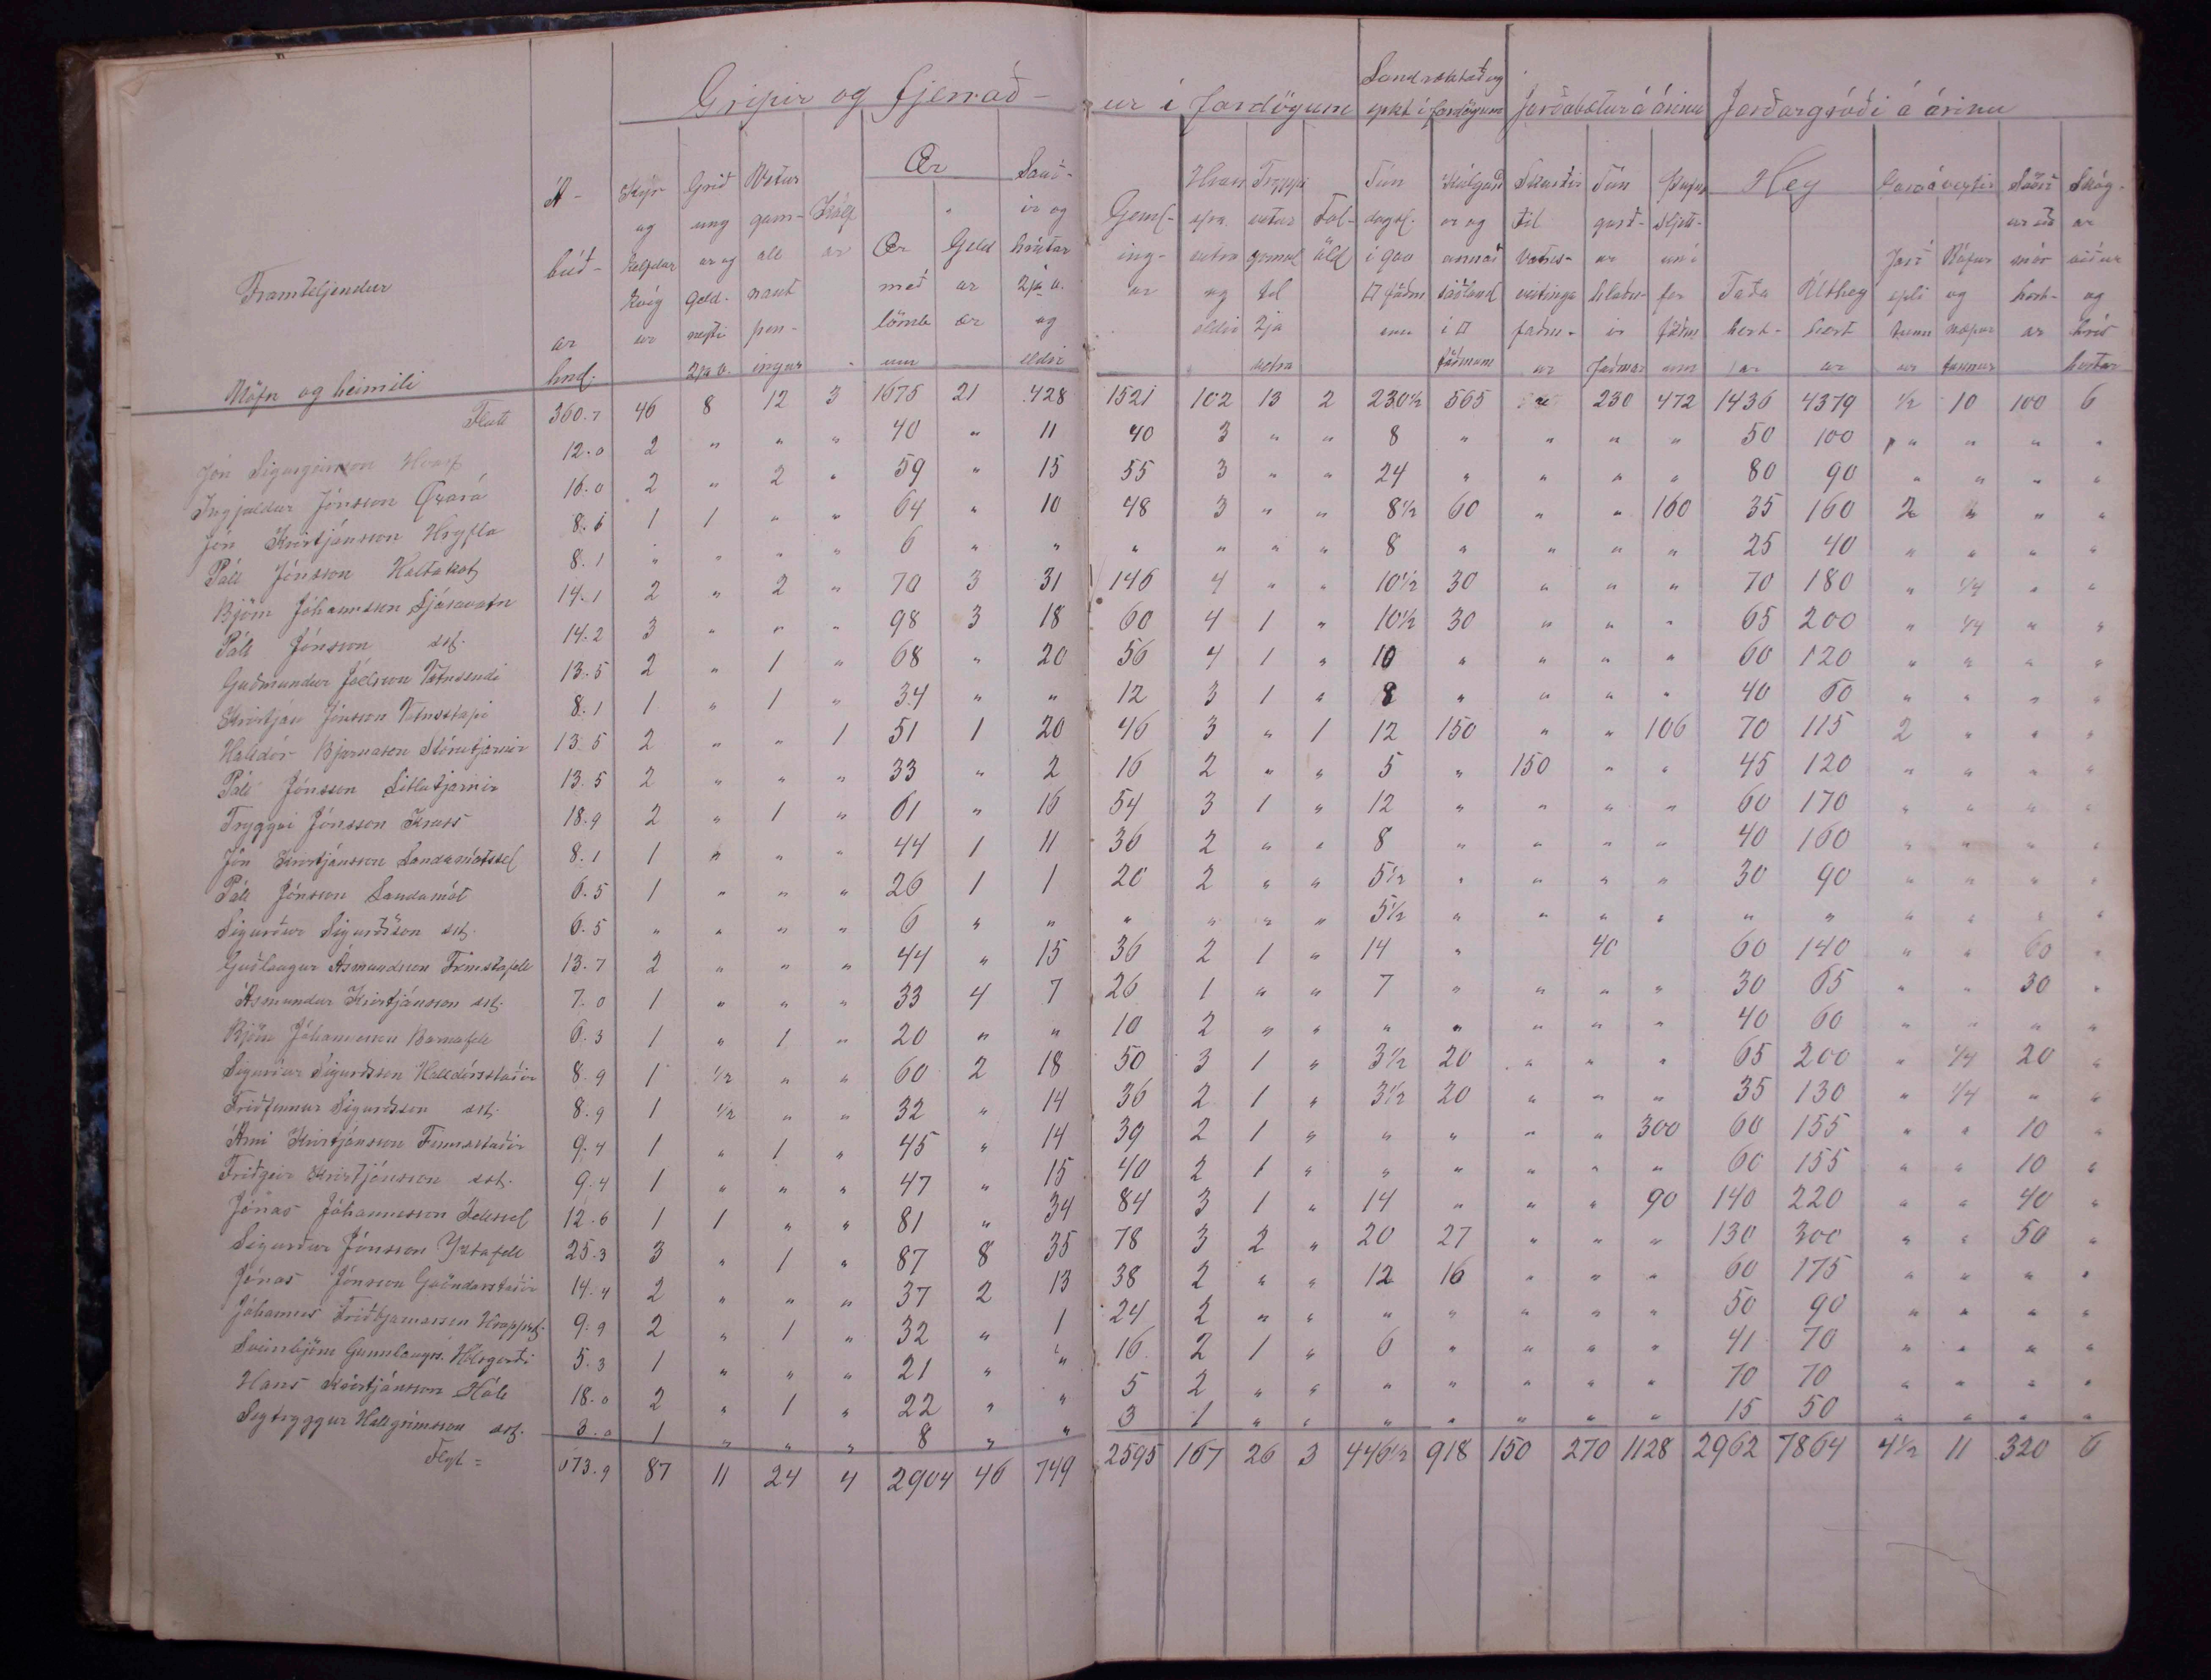 Gripir og fjenað- ur í fardögum
Land ræktað og yrkt í fardögum
Jarðabætur á árinu
Jarðargróði á árinu
Framteljendur
Nöfn og heimili
Á-búð-ar hnd.
Kýr og kelfdar kvíg ur
Grið ung ar og geld. neyti 2ja v.
Vetur gam-all naut pen-ingur
Kálf ar
Ær
Ær með lömb um
Geld ar ær
Sauð-ir og hrútar 2ja v. og eldri
Geml-ing-ar
Hross 4ra vetra og eldri
Tryppi vetur gömul til 3ja vetra
Fol-öld
Tún dagsl. í 900 □ föðm um
Kálgarð ar og annað sáðland í □ föðmum
Skurðir til vatns-veitinga faðm-ar
Tún garð-ar hlaðn-ir faðmar
Þúfna sljett-un í fer föðm um
Hey
Taða hest-ar
Úthey hest ar
Garðávextir
Jarð epli tunn ur
Rófur og næpur tunnur
Svörð ur eða mór hest-ar
Skóg-ar viður og hrís hestar
Flutt 360.7 46 8 12 3 1675 21 428 1521 102 13 2 230½ 565 " 230 472 1436 4379 ½ 10 100 6
Jón Sigurgeirsson Hvarf 12.0 2 " " " 40 " 11 40 3 " " 8 " " " " 50 100 " " " "
Ingjaldur Jónsson Öxará 16.0 2 " 2 " 59 " 15 55 3 " " 24 " " " " 80 90 " " " "
Jón Kristjánsson Hryfla 8.1 1 1 " " 64 " 10 48 3 " " 8½ 60 " " 160 35 160 2 " " "
Páll Jónsson Holtakot 8.1 " " " " 6 " " " " " " 8 " " " " 25 40 " " " "
Björn Jóhannsson Ljósavatn 14.1 2 " 2 " 70 3 31 146 4 " " 10½ 30 " " " 70 180 " ¼ " "
Páll Jónsson sst. 14.2 3 " " " 98 3 18 60 4 1 " 10½ 30 " " " 65 200 " ¼ " "
Guðmundur Jóelsson Vatnsendi 13.5 2 " 1 " 68 " 20 56 4 1 " 10 " " " " 60 120 " " " "
Kristján Jónsson Vatnsstapi 8.1 1 " 1 " 34 " " 12 3 1 " 8 " " " " 40 60 " " " "
Halldór Bjarnason Stórutjarnir 13.5 2 " " 1 51 1 20 46 3 " 1 12 150 " " 106 70 115 2 " " "
Páll Jónsson Litlutjarnir 13.5 2 " " " 33 " 2 16 2 " " 5 " 150 " " 45 120 " " " "
Tryggvi Jónsson Kross 18.9 2 " 1 " 61 " 16 54 3 1 " 12 " " " " 60 170 " " " "
Jón Kristjánsson Landamótssel 8.1 1 " " " 44 1 11 36 2 " " 8 " " " " 40 160 " " " "
Páll Jónsson Landamót 6.5 1 " " " 26 1 1 20 2 " " 5½ " " " " 30 90 " " " "
Sigurður Sigurðsson sst. 6.5 " " " " 6 " " " " " " 5½ " " " " " " " " " "
Guðlaugur Ásmundsson Fremstafell 13.7 2 " " " 44 " 15 36 2 1 " 14 " 40 60 140 " " 60 "
Ásmundur Kristjánsson sst. 7.0 1 " " " 33 4 7 26 1 " " 7 " " " " 30 65 " " 30 "
Björn Jóhannsson Barnafell 6.3 1 " 1 " 20 " " 10 2 " " " " " " " 40 60 " " " "
Sigurður Sigurðsson Halldórsstaðir 8.9 1 ½ " " 60 2 18 50 3 1 " 3½ 20 " " " 65 200 " ¼ 20 "
Friðfinnur Sigurðsson sst. 8.9 1 ½ " " 32 " 14 36 2 1 " 3½ 20 " " " 35 130 " ¼ " "
Árni Kristjánsson Finnsstaðir 9.4 1 " 1 " 45 " 14 39 2 1 " " " " " 300 60 155 " " 10 "
Friðgeir Kristjánsson sst. 9.4 1 " " " 47 " 15 40 2 1 " " " " " " 60 155 " " 10 "
Jónas Jóhannesson Fellssel 12.6 1 1 " " 81 " 34 84 3 1 " 14 " " " 90 140 220 " " 40 "
Sigurður Jónsson Yztafell 25.3 3 " 1 " 87 8 35 78 3 2 " 20 27 " " " 130 300 " " 50 "
Jónas Jónsson Guðndarstaðir 14.4 2 " " " 37 2 13 38 2 " " 12 16 " " " 60 175 " " " "
Jóhannes Friðbjarnarson Hrappst. 9.9 2 " 1 " 32 " 1 24 2 " " " " " " " 50 90 " " " "
Sveinbjörn Gunnlaugss. Hólsgerði 5.3 1 " " " 21 " " 16 2 1 " 6 " " " " 41 70 " " " "
Hans Kristjánsson Hóll 18.0 2 " 1 " 22 " " 5 2 " " " " " " " 70 70 " " " "
Sigtryggur Hallgrímsson sst. 3.0 1 " " " 8 " " 3 1 " " " " " " " 15 50 " " " "
Flyt = 673.9 87 11 24 4 2904 46 749 2595 167 26 3 446½ 918 150 270 1128 2962 7864 4½ 11 320 6